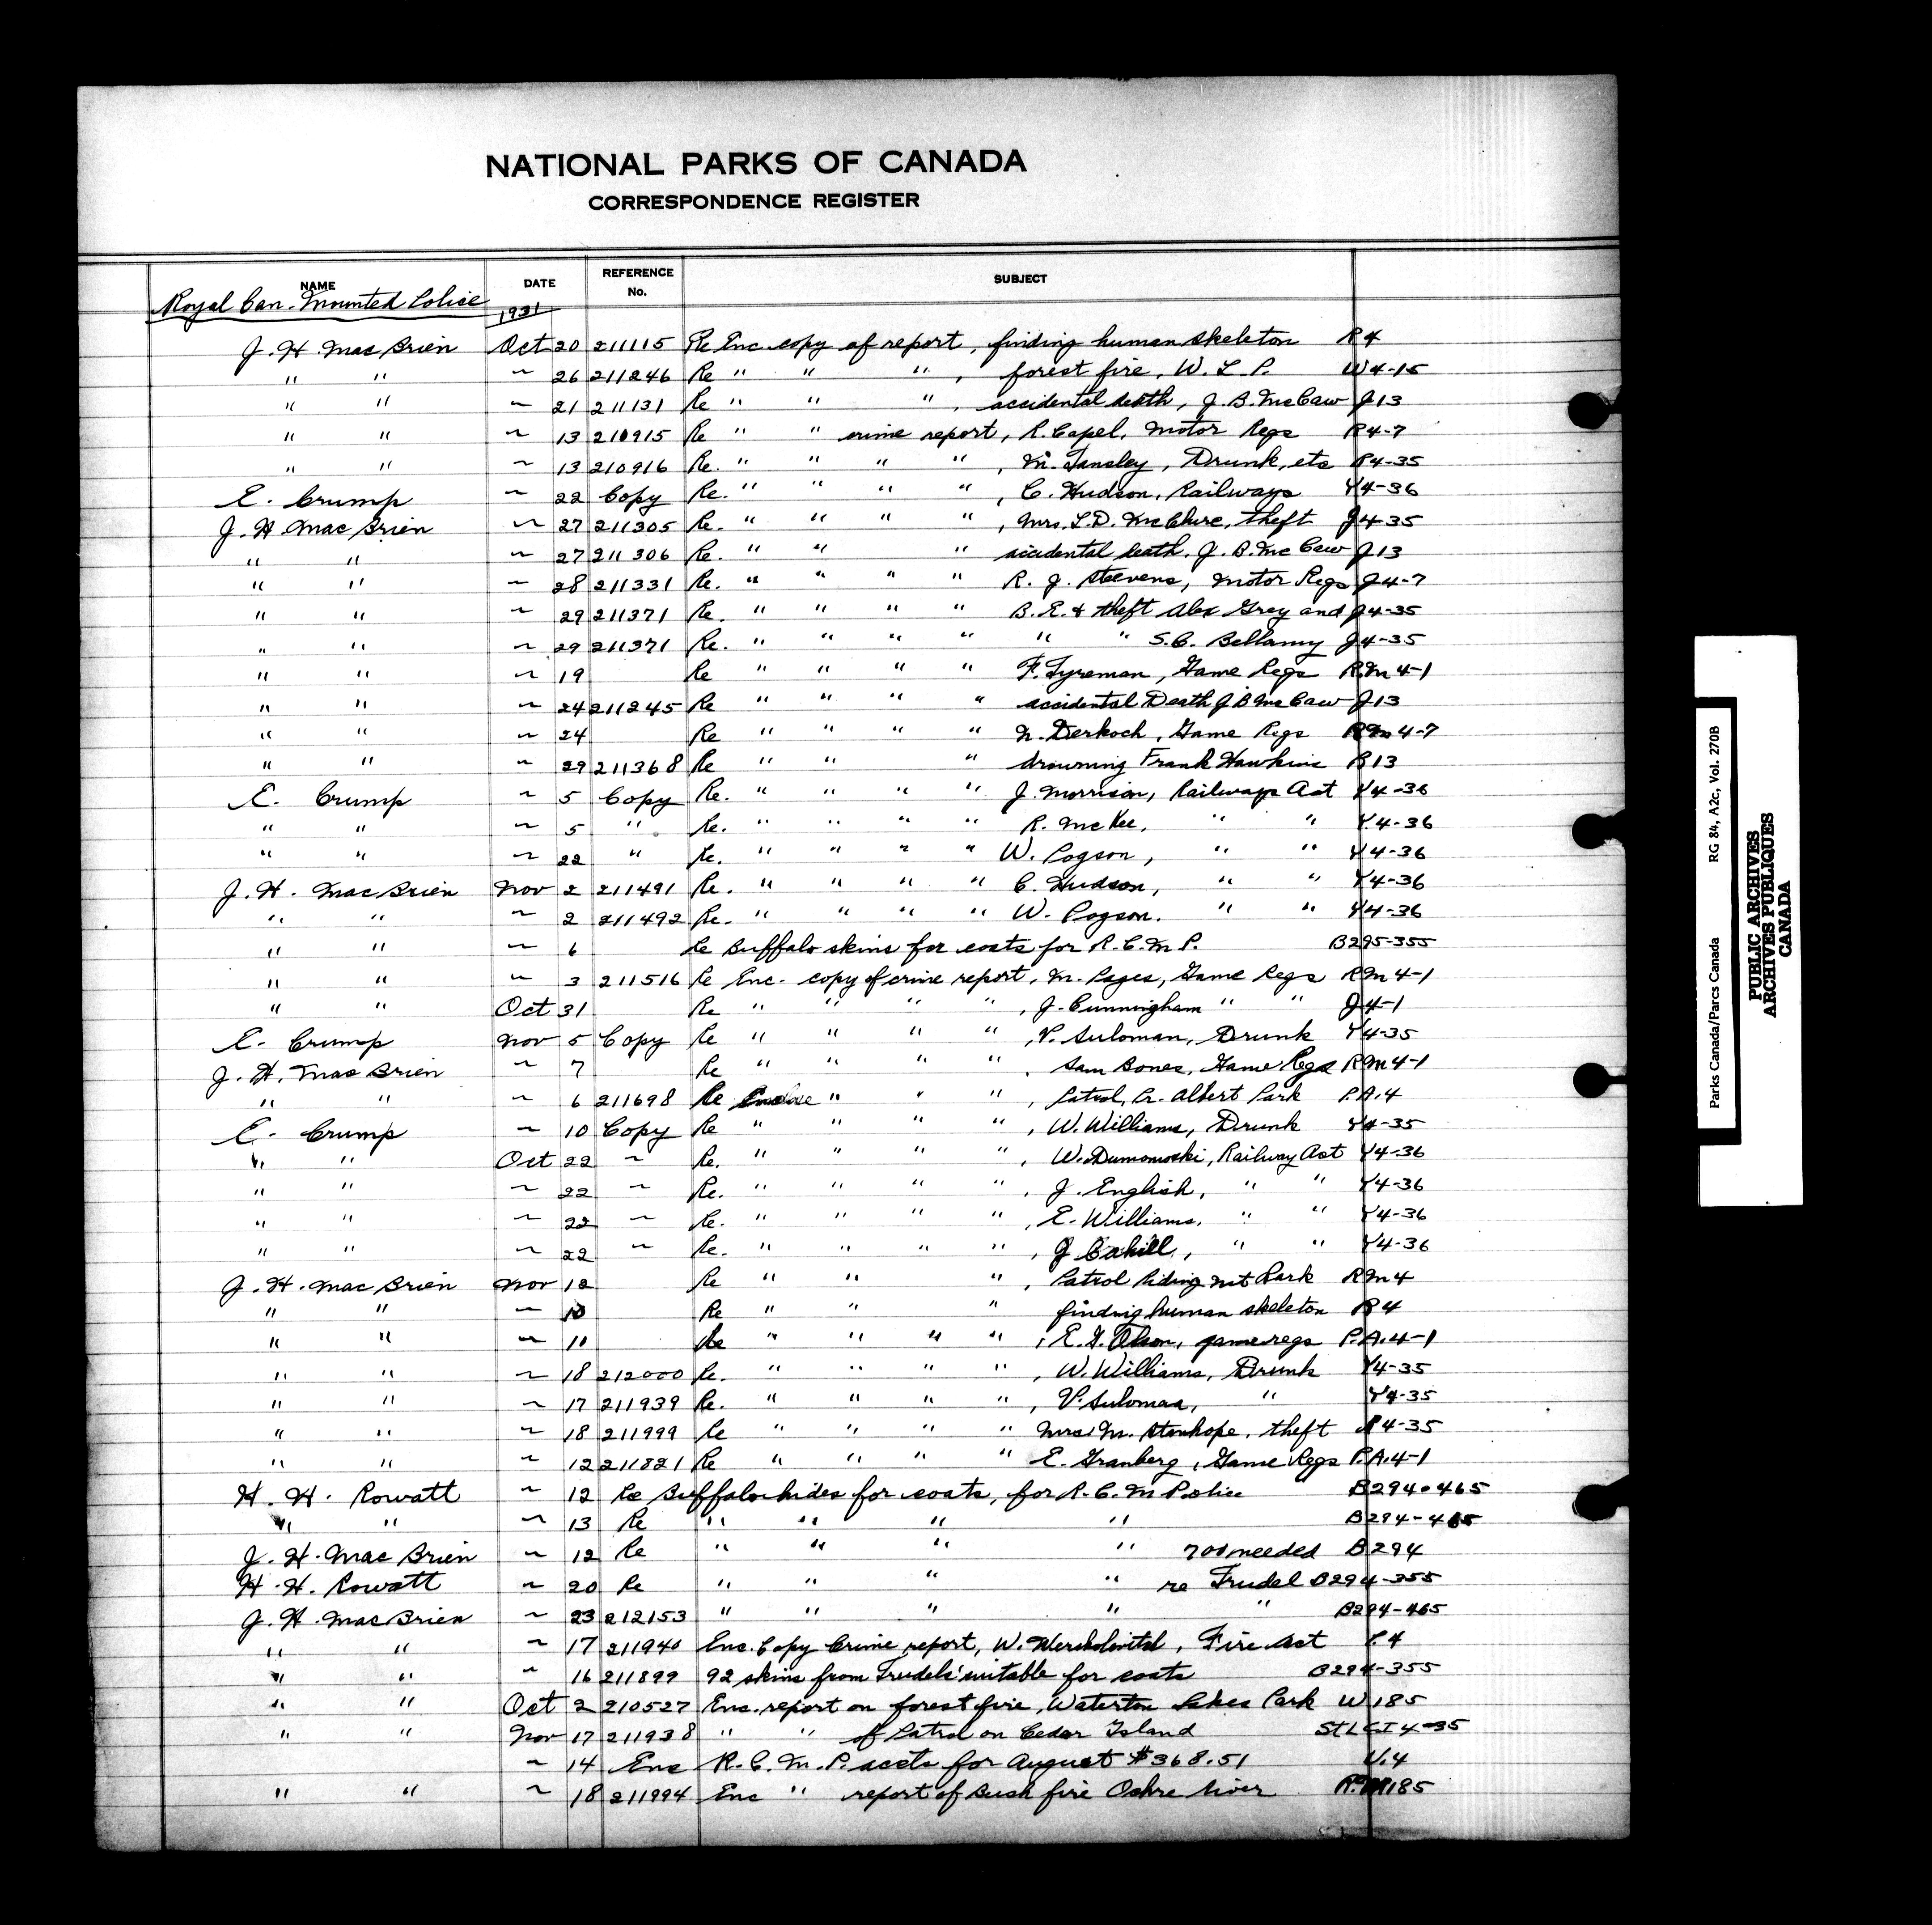 NATIONAL PARKS OF CANADA
CORRESPONDENCE REGISTER
NAME DATE REFERENCE No. SUBJECT
Royal Can. Mounted Police 1931
J. H. MacBrien Oct 20 211115 Re Enc. copy of report, finding human skeleton R4
" " ~ 26 211246 Re " " ", forest fire, W. L. P. W4-15
" " ~ 21 211131 Re " " ", accidental death, J. B. McCaw J13
" " ~ 13 210915 Re " " crime report, R. Capel, Motor Regs R4-7
" " ~ 13 210916 Re. " " " ", M. Tansley, Drunk, etc R4-35
E. Crump ~ 22 Copy Re. " " " ", C. Hudson, Railways Y4-36
J. H. MacBrien ~ 27 211305 Re. " " " ", Mrs. L. D. McClure, theft J4-35
" " ~ 27 211306 Re. " " " accidental death, J. B. McCaw J13
" " ~ 28 211331 Re. " " " " R. J. Steevens, Motor Regs J4-7
" " ~ 29 211371 Re. " " " " B. E. & theft Alex Grey and J4-35
" " ~ 29 211371 Re. " " " " " " S. C. Bellamy J4-35
" " ~ 19 Re " " " " F. Tyreman, Game Regs R.M 4-1
" " ~ 24 211245 Re " " " " accidental Death J. B. McCaw J13
" " ~ 24 Re " " " " N. Derkoch, Game Regs RM 4-7
" " ~ 29 211368 Re " " " drowning Frank Hawkins B13
E. Crump ~ 5 Copy Re. " " " " J. Morrison, Railways Act Y4-36
" " ~ 5 " Re. " " " " R. McKee, " " Y4-36
" " ~ 22 " Re. " " " " W. Pogson, " " Y4-36
J. H. MacBrien Nov 2 211491 Re. " " " " C. Hudson, " " Y4-36
" " ~ 2 211492 Re. " " " " W. Pogson. " " Y4-36
" " ~ 6 Re Buffalo skins for coats for R. C. M. P. B295-355
" " ~ 3 211516 Re Enc. copy of crime report, M. Pages, Game Regs RM 4-1
" " Oct 31 Re " " " ", J. Cunningham " " J4-1
E. Crump Nov 5 Copy Re " " " ", V. Suloman, Drunk Y4-35
J. H. MacBrien ~ 7 Re " " " ", Sam Bones, Game Regs RM 4-1
" " ~ 6 211698 Re Enclose " " ", Patrol, Pr. Albert Park P.A.4
E. Crump ~ 10 Copy Re " " " ", W. Williams, Drunk Y4-35
" " Oct 22 ~ Re. " " " ", W. Dumonoski, Railway Act Y4-36
" " ~ 22 ~ Re. " " " ", J. English, " " Y4-36
" " ~ 22 ~ Re. " " " ", E. Williams, " " Y4-36
" " ~ 22 ~ Re. " " " ", J Cahill, " " Y4-36
J. H. MacBrien Nov 12 Re " " ", Patrol Riding Mt Park RM 4
" " ~ 10 Re " " " finding human skeleton R4
" " ~ 10 Re " " " ", E. G. Olson, game regs P.A.4-1
" " ~ 18 212000 Re. " " " ", W. Williams, Drunk Y4-35
" " ~ 17 211939 Re. " " " ", V. Suloman, " Y4-35
" " ~ 18 211999 Re " " " " Mrs. M. Stanhope, theft 4-35
" " ~ 12 211821 Re " " " " E. Granberg, Game Regs P.A.4-1
H. H. Rowatt ~ 12 Re Buffalo hides for coats, for R. C. M Police B294-465
" " ~ 13 Re " " " " B294-465
J. H. MacBrien ~ 12 Re " " " " 700 needed B294
H. H. Rowatt ~ 20 Re " " " " re Trudel B294-355
J. H. MacBrien ~ 23 212153 " " " " " B294-465
" " ~ 17 211940 Enc. Copy Crime report, W. Fire Act 4
" " ~ 16 211899 92 skins from Trudels' suitable for coats B294-355
" " Oct 2 210527 Enc. report on forest fire, Waterton Lakes Park W185
" " Nov 17 211938 " " of Patrol on Cedar Island St L C I 4-35
~ 14 Enc R. C. M. P. accts for August $368.51 U.4
" " ~ 18 211994 Enc " report of Bush fire Ochre River R.M185
Parks Canada/Parcs Canada RG 84, A2c, Vol. 270B
PUBLIC ARCHIVES
ARCHIVES PUBLIQUES
CANADA